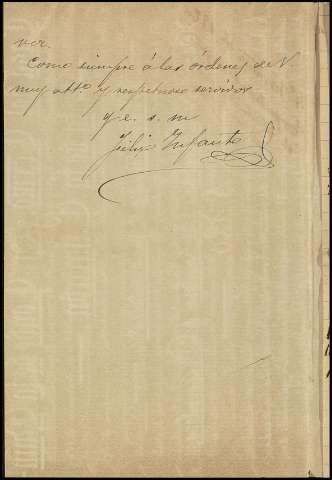 ver.
Como siempre á las órdenes de V
muy attº. y respetuoso servidor
q. e. s. m
Infante